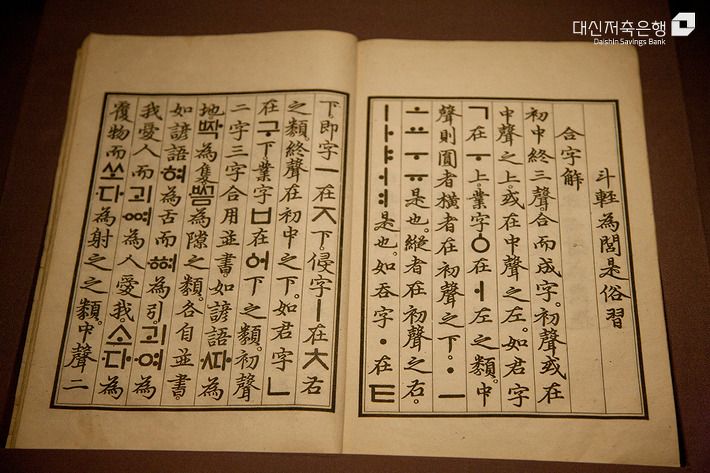 斗輕為閭是俗習
合字解
初中終三聲。合而成字。初聲或在
中聲之上。或在中聲之左。如君字
ㄱ在ㅜ上。業字ㆁ在ㅓ左之類。中
聲則圓者橫者在初聲之下。ㆍㅡ
ㅗㅛㅜㅠ是也。縱者在初聲之右。
ㅣㅏㅑㅓㅕ是也。如吞字ㆍ在ㅌ
下。即字ㅡ在ㅈ下。侵字ㅣ在ㅊ右
之類。終聲在初中之下。如君字ㄴ
在구下。業字ㅂ在ᅌᅥ下之類。初聲
二字三字合用並書。如諺語ᄯᅡ為
地。ᄧᅡᆨ為隻。ᄢᅳᆷ為隙之類。各自並書。
如諺語혀為舌而ᅘᅧ為引。괴여為
我愛人而괴ᅇᅧ為人愛我。소다為
覆物而쏘다為射之之類。中聲二
대신저축은행
Daishin Savings Bank